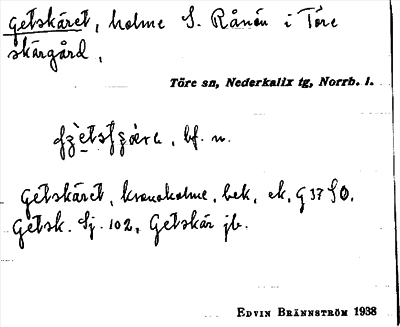 Getskäret, holme S. Rånön i Töre
skärgård.
Töre sn, Nederkalix tg, Norrb. l.
bf. n.
Getskäret, kronoholme, bek. ek. G 37 SO.
Getsk. Sj. 102, Getskär jb.
EDVIN BRÄNNSTRÖM 1938